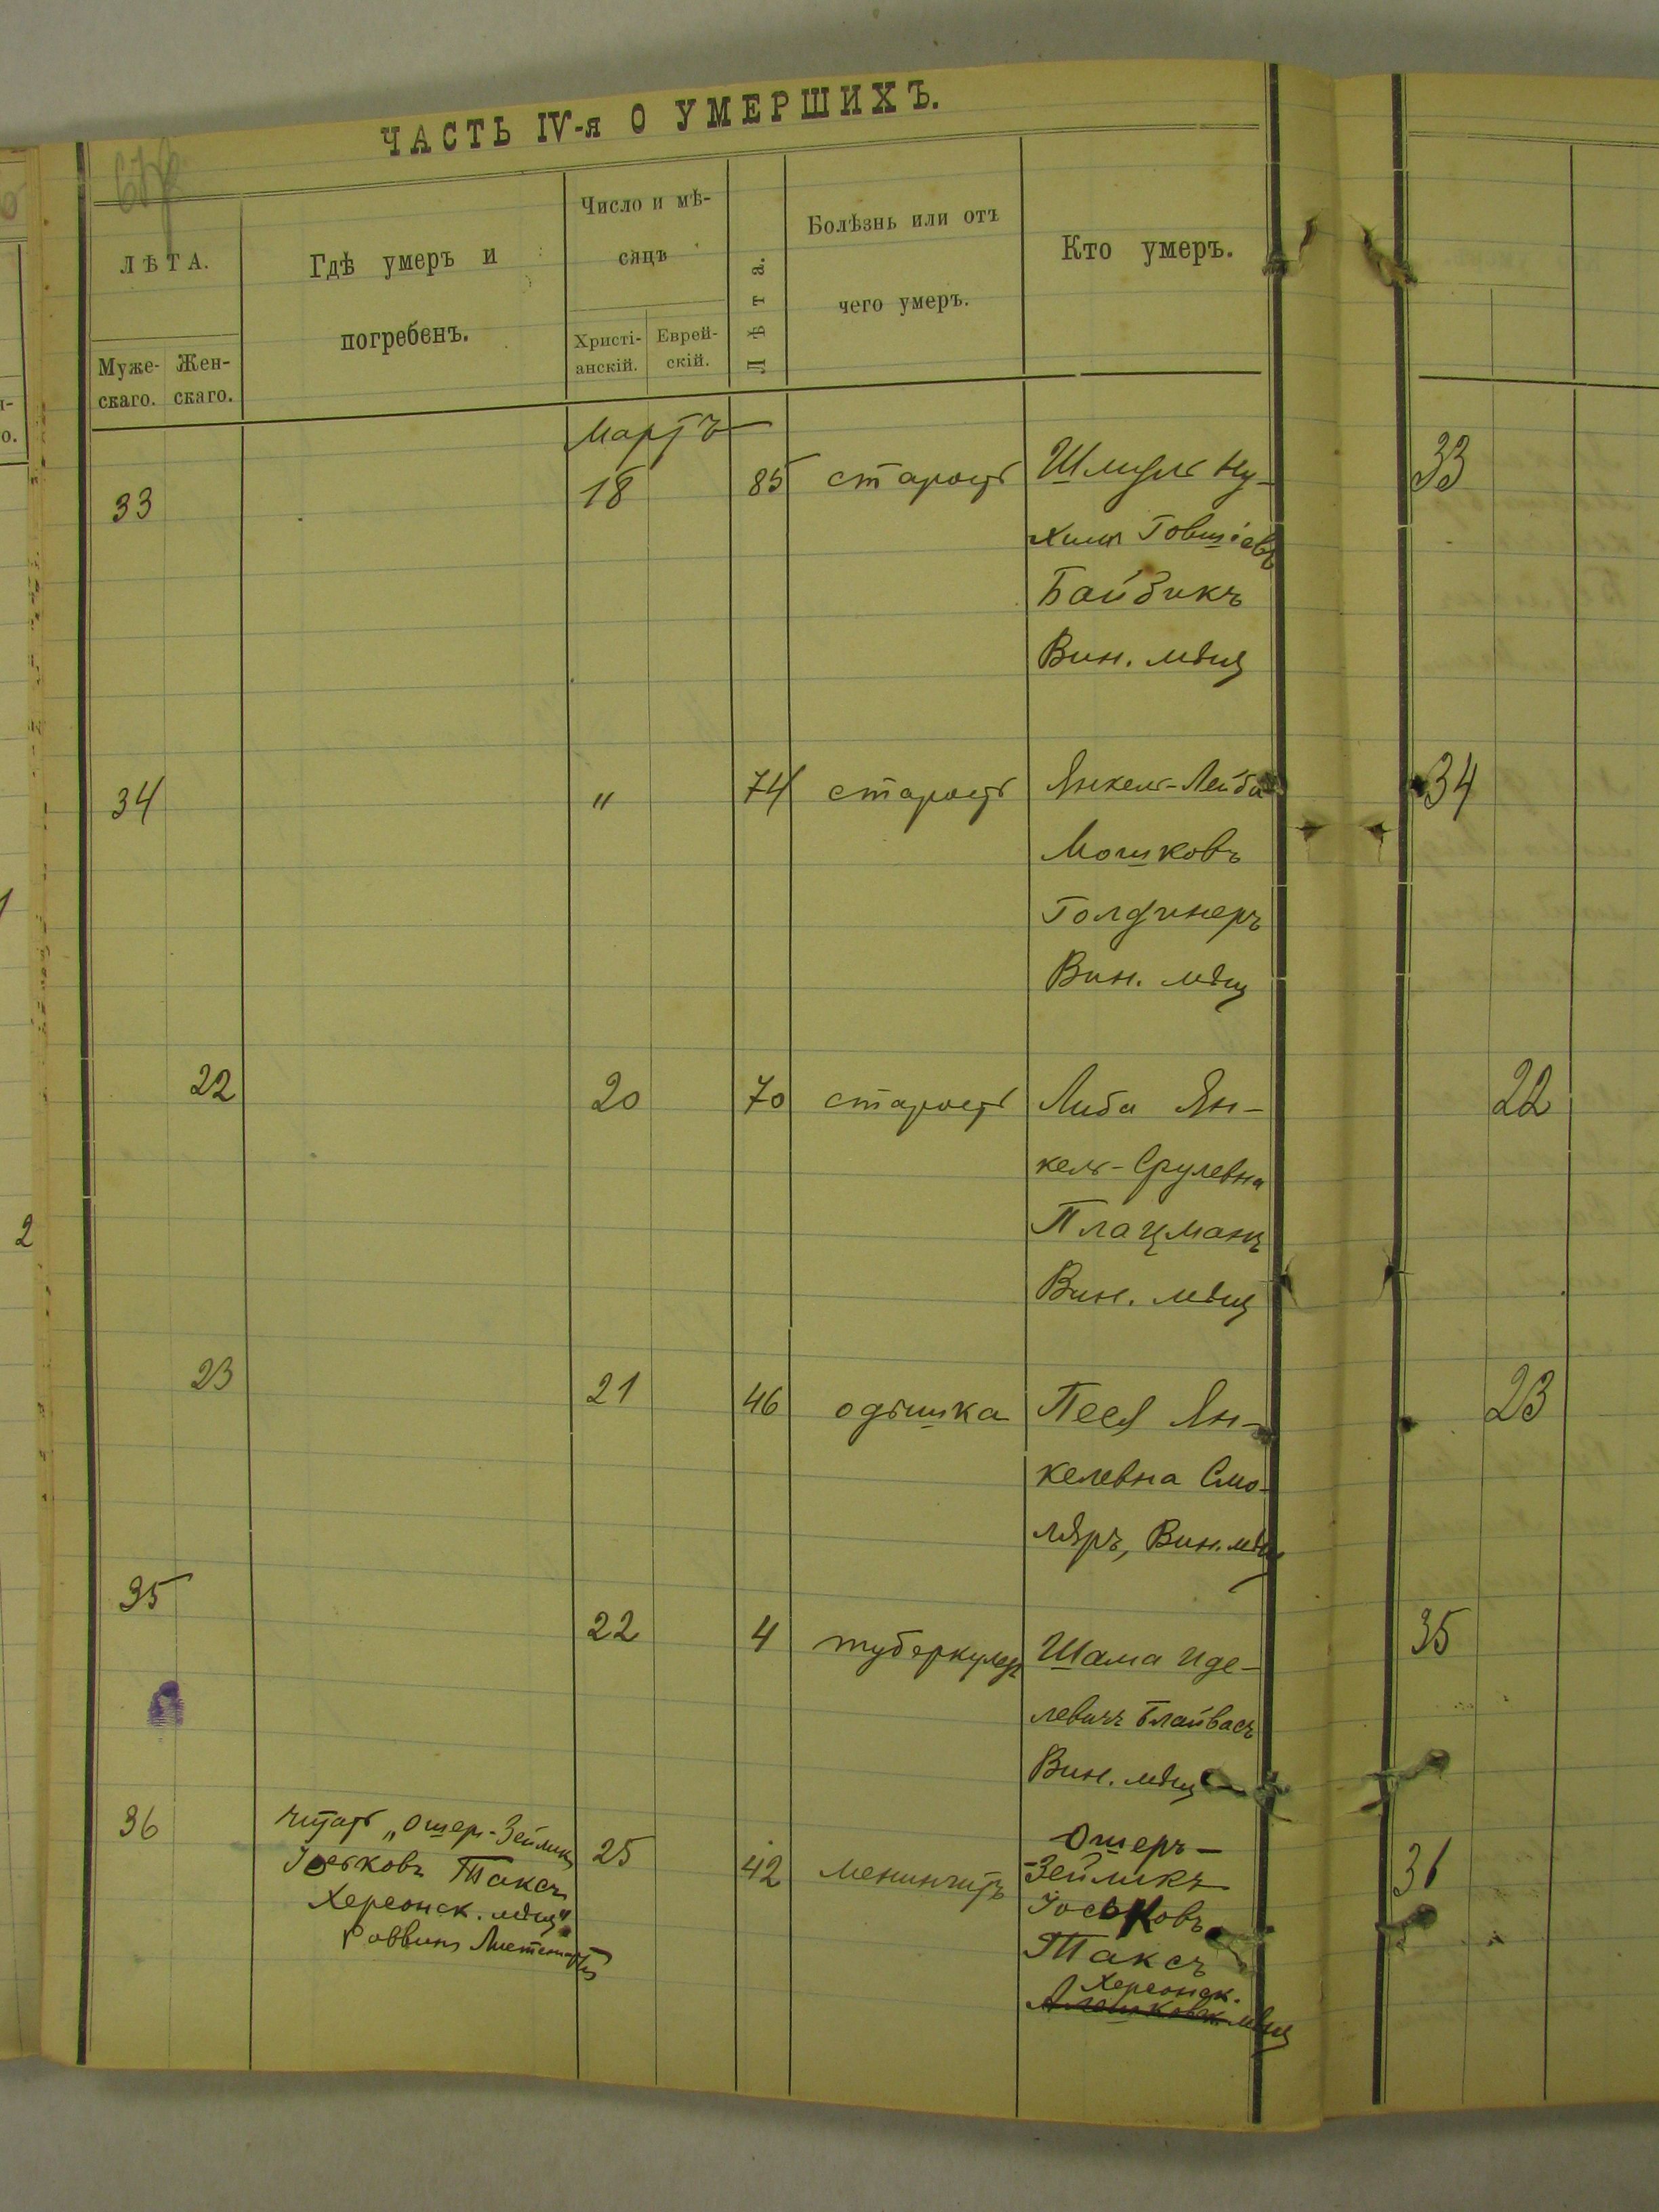 ЧАСТЬ IV-я О УМЕРШИХЪ.
ЛѢТА.
Муже-скаго.
Жен-скаго.
Гдѣ умеръ и
погребенъ.
Число и мѣ-
сяцъ
Христі-анскій.
Еврей-скій.
Лѣта.
Болѣзнь или отъ
чего умеръ.
Кто умеръ.
Мартъ
33 18 85 старость Шмуль Ну-
химъ Говшіевъ
Байзикъ
Вин. мѣщ
33
34 " 74 старость Янкель-Лейба
Мошковъ
Голдинеръ
Вин. мѣщ
34
22 20 70 старость Либа Ян-
кель-Срулевна
Плацманъ
Вин. мѣщ
22
23 21 46 одышка Песя Ян-
келевна Смо-
ляръ, Вин. мѣщ
23
35 22 4 туберкулезъ Шама Иде-
левичъ Блайвасъ
Вин. мѣщ
35
36 25 42 менингитъ Ошеръ-
-Зейликъ
Іоськовъ
Таксъ
Херсонск.
Алешковск. мѣщ
читать „Ошеръ-Зейликъ
Іоськовъ Таксъ
Херсонск. мѣщ“
Раввинъ
2